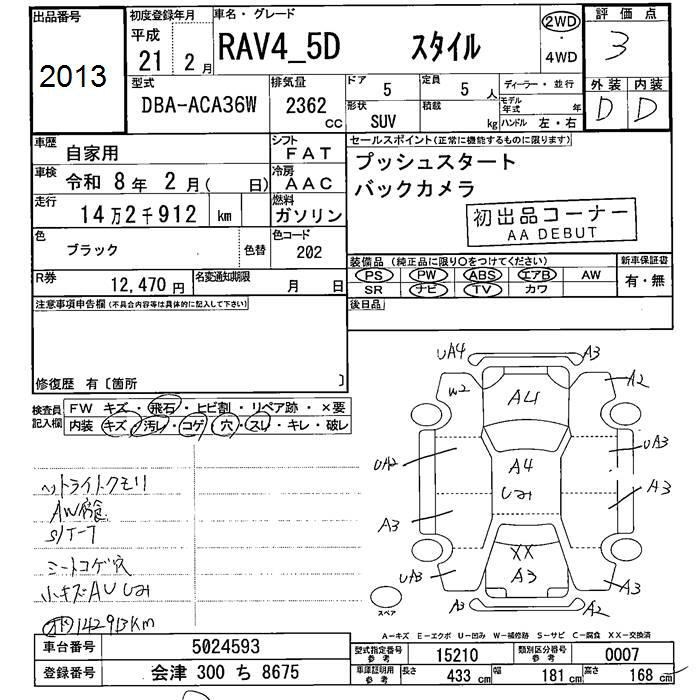 出品番号 初度登録年月 車名・グレード 評価点
2013 平成 21 2月 RAV4_5D スタイル 2WD・4WD 3
型式 排気量 ドア 5 定員 5人 ディーラー・並行 外装 内装
DBA-ACA36W 2362 CC 形状 SUV 積載 kg モデル年式 年 ハンドル 左・右 D D
車歴 自家用 シフト FAT セールスポイント(正常に機能するものに限ります)
車検 令和 8年 2月( 日) 冷房 AAC プッシュスタート
走行 14万2千912 km 燃料 ガソリン バックカメラ
初出品コーナー
AA DEBUT
色 ブラック 色替 色コード 202
装備品(純正品に限り○をつけてください) 新車保証書
PS PW ABS エアB AW 有・無
SR ナビ TV カワ
R券 12,470円 名変通知期限 月 日
注意事項申告欄(不具合内容等は具体的に記入して下さい) 後日品
修復歴 有〔箇所 〕
検査員記入欄 FW キズ・飛石・ヒビ割・リペア跡・×要
内装 キズ・汚レ・コゲ・穴・スレ・キレ・破レ
ヘットライトクモリ
AW腐食
S/T-7
シートコゲ穴
小キズAUしみ
142913km
UA4 A3
W2 A4 A2
UA2 A4 UA3
しみ A3
A3
XX
UA3 A3 A3
A3 A2
スペア
A-キズ E-エクボ U-凹み W-補修跡 S-サビ C-腐食 XX-交換済
車台番号 5024593 型式指定番号 参考 15210 類別区分番号 参考 0007
登録番号 会津 300 ち 8675 車庫証明用 参考 長さ 433 cm 幅 181 cm 高さ 168 cm